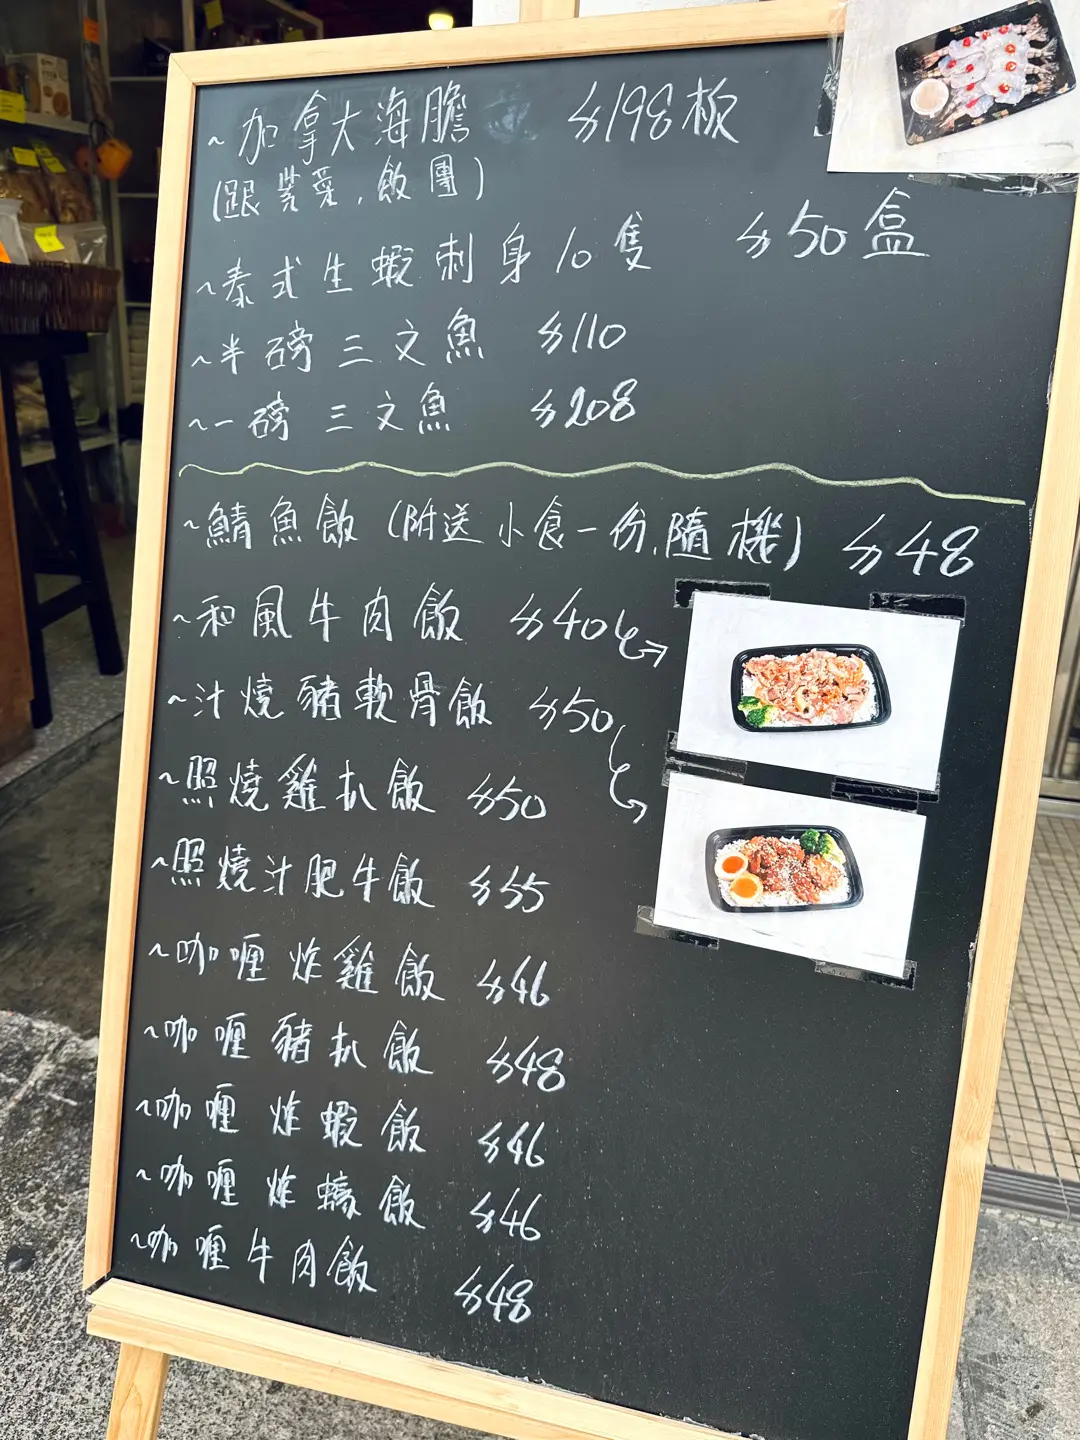 ~加拿大海膽 $198板
(跟紫菜,飯團)
~泰式生蝦刺身10隻 $50盒
~半磅三文魚 $110
~一磅三文魚 $208
~鯖魚飯(附送小食一份,隨機) $48
~和風牛肉飯 $40
~汁燒豬軟骨飯 $50
~照燒雞扒飯 $50
~照燒汁肥牛飯 $55
~咖喱炸雞飯 $46
~咖喱豬扒飯 $48
~咖喱炸蝦飯 $46
~咖喱炸蠔飯 $46
~咖喱牛肉飯 $48